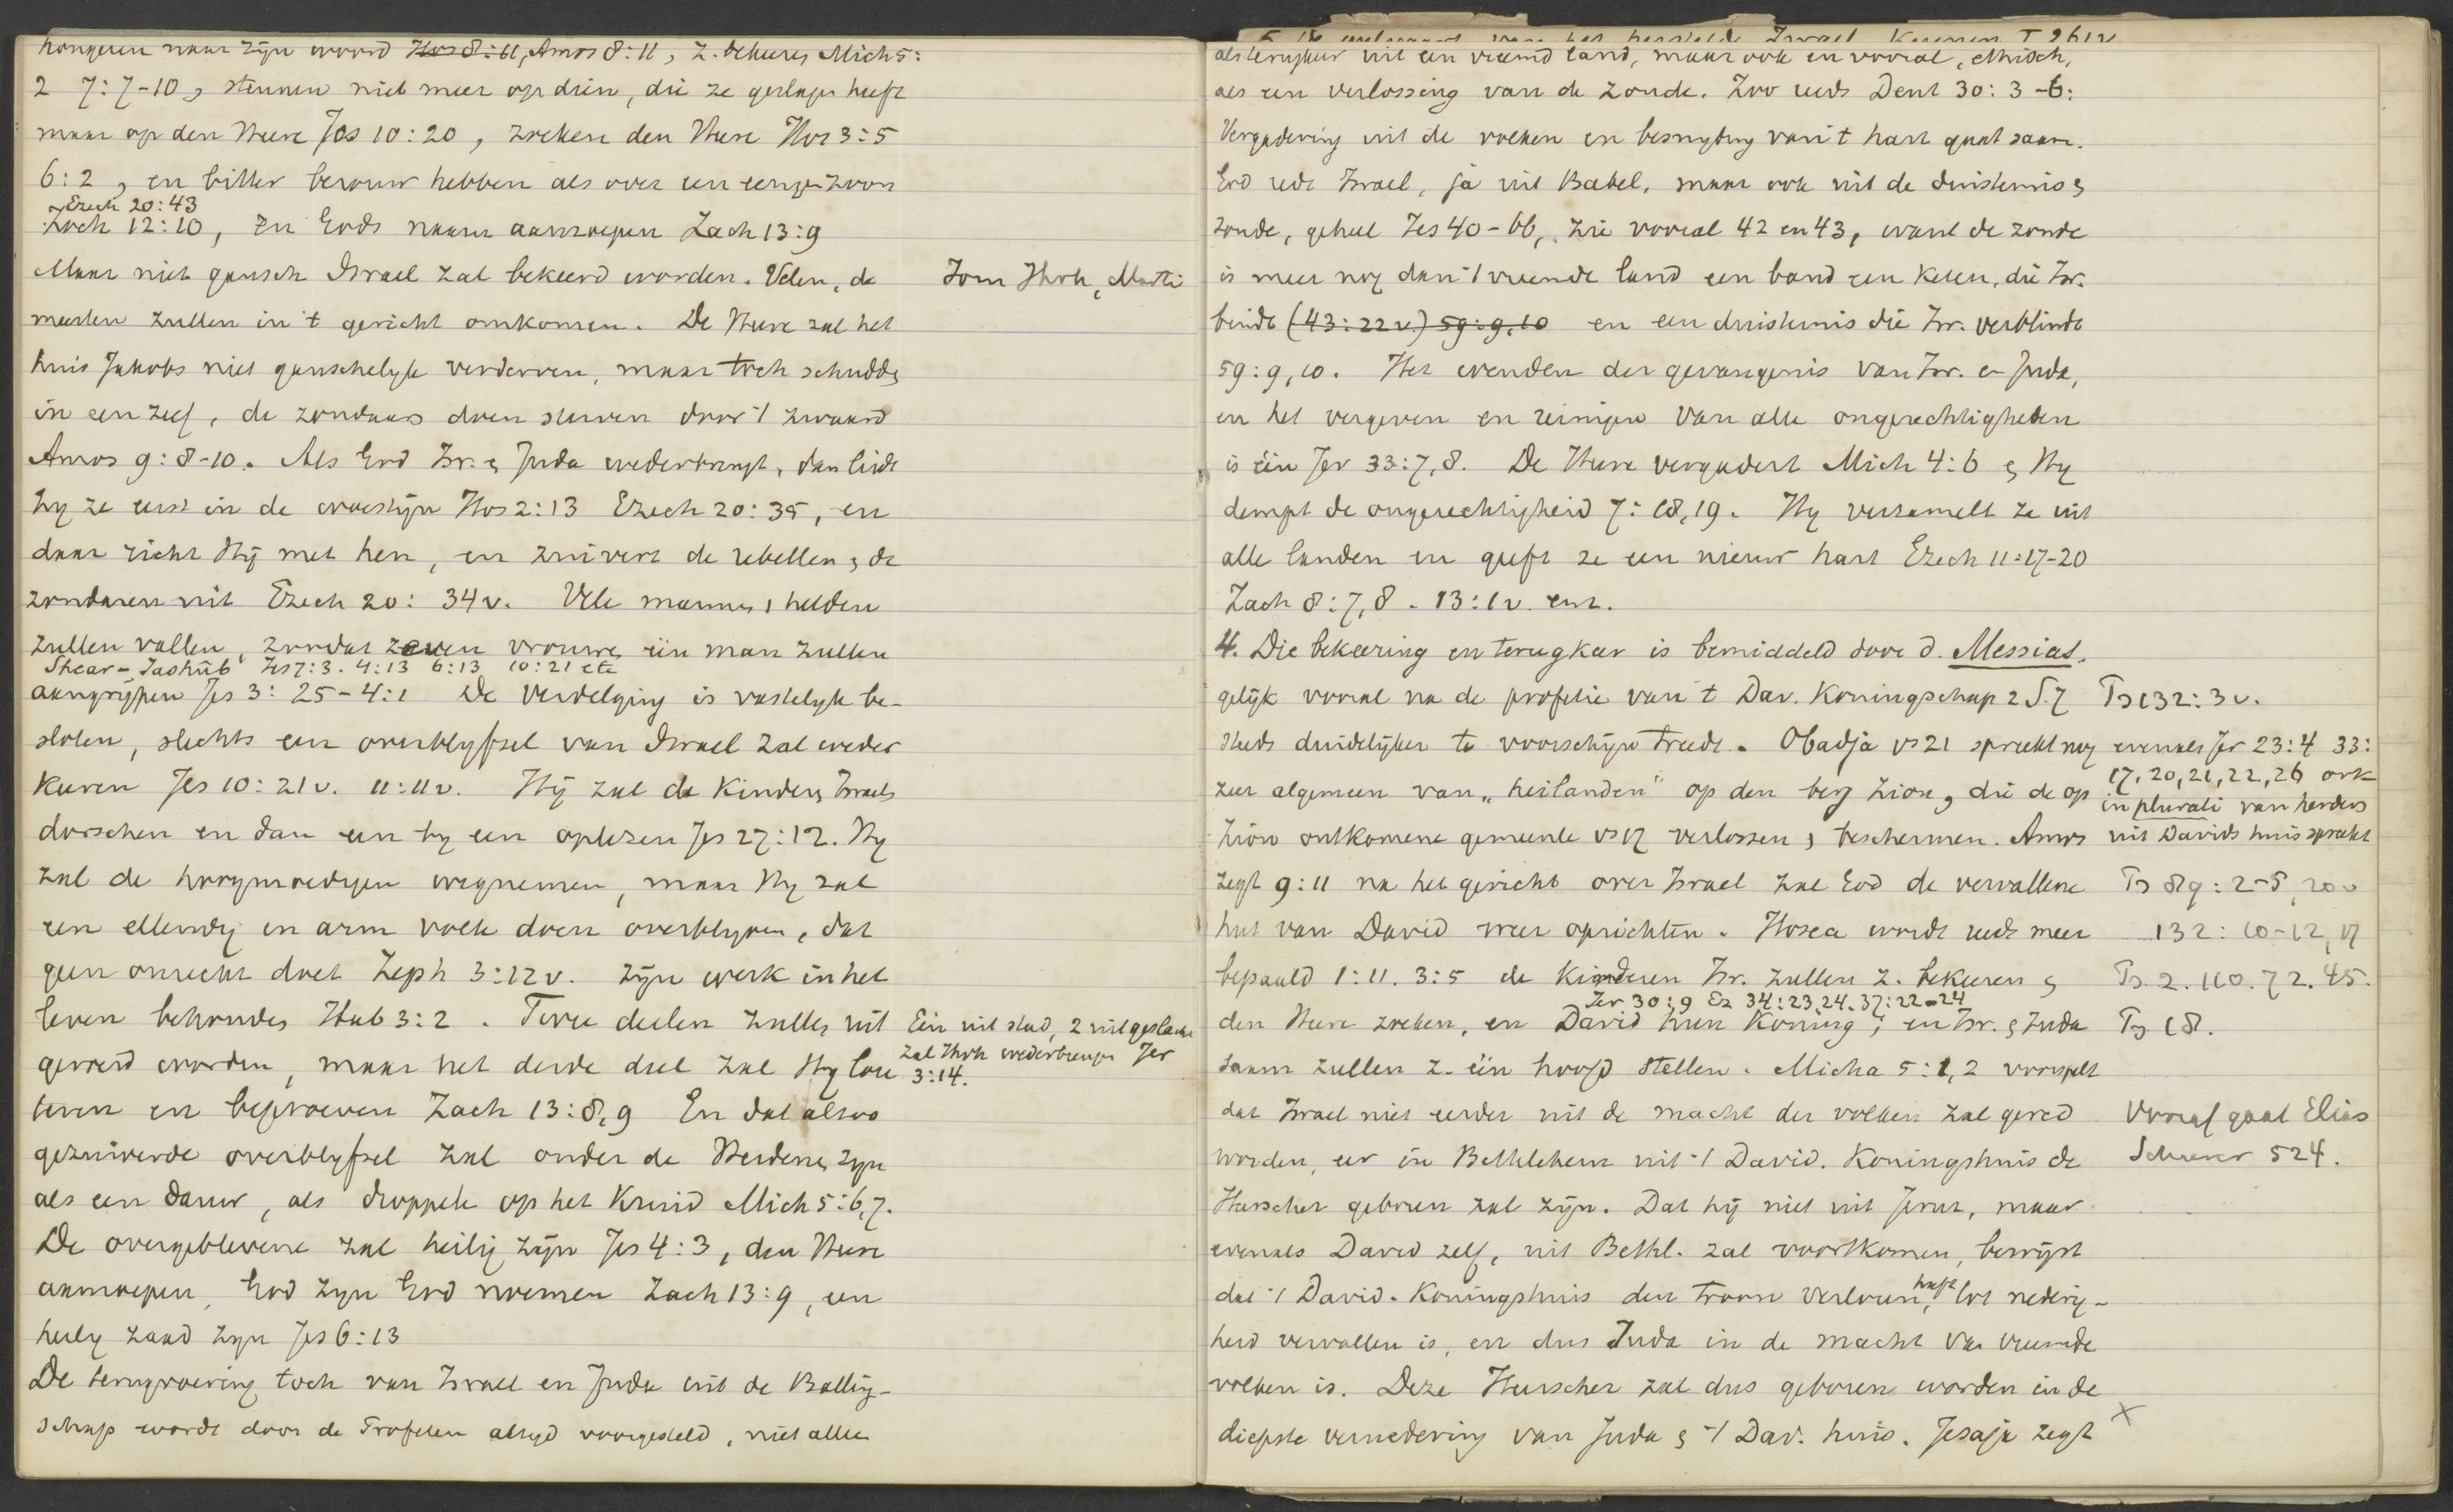 hongeren naar zijn woord Hos 8:11, Amos 8:11, z. bekeeren Mich 5:
2 7:7-10, steunen niet meer op dien, die ze geslagen heeft
maar op den Heere Jes 10:20, zoeken den Heere Hos 3:5
6:2, en bitter berouw hebben als over een eengen zoon
Ezech 20:43
Zach 12:10, en Gods naam aanroepen Zach 13:9
Maar niet gansch Israel zal bekeerd worden. Velen, de
Jom Jhvh,
meesten zullen in 't gericht omkomen. De Heere zal het
huis Jakobs niet ganschelyk verderven, maar toch schudden
in een zeef, de zondaars doen sterven door 't zwaard
Amos 9:8-10. Als God Isr. en Juda wederbrengt, dan leidt
hy ze eerst in de woestijn Hos 2:13 Ezech 20:35, en
daar richt Hij met hen, en zuivert de rebellen en de
zondaren uit Ezech 20:34v. Vele mannen, helden
zullen vallen, zoodat zeven vrouwen één man zullen
Shear-Jashûb Jes 7:3. 4:13 6:13 10:21 etc
aangrijpen Jes 3:25-4:1 De verdelging is vastelyk be-
sloten, slechts een overblyfsel van Israel zal weder
keeren Jes 10:21v. 11:11v. Hij zal de kinderen Israels
dorschen en dan een by een oplezen Jes 27:12. Hy
zal de hoogmoedigen wegnemen, maar Hy zal
een ellendig en arm volk doen overblyven, dat
geen onrecht doet Zeph 3:12v. zijn werk in het
leven behouden Hab 3:2. Twee deelen zullen uit
Een uit stad, 2 uit geslacht
zal Jhvh wederbrengen Jer
3:14.
geroeid worden, maar het derde deel zal Hy lou
teren en beproeven Zach 13:8,9 En dat alzoo
gezuiverde overblyfsel zal onder de Heidenen zyn
als een dauw, als droppels op het kruid Mich 5:6,7.
De overgeblevene zal heilig zijn Jes 4:3, den Heere
aanroepen, God zyn God noemen Zach 13:9, een
heilig zaad zyn Jes 6:13
De terugvoering toch van Israel en Juda uit de Balling-
schap wordt door de Profeten altyd voorgesteld, niet alleen
als terugkeer uit een vreemd land, maar ook en vooral, ethisch,
als een verlossing van de zonde. Zoo reeds Deut 30:3-6:
Vergadering uit de volken en besnyding van 't hart gaat saam.
God redt Israel, ja uit Babel, maar ook uit de duisternis en
zonde, geheel Jes 40-66, zie vooral 42 en 43, want de zonde
is meer nog dan 't vreemde land een band een keten, die Isr.
bindt (43:22v.) 59:9,10 en een duisternis die Isr. verblindt
59:9,10. Het wenden der gevangenis van Isr. en Juda,
en het vergeven en reinigen van alle ongerechtigheden
is één Jer 33:7,8. De Heere vergadert Mich 4:6 en Hy
dempt de ongerechtigheid 7:18,19. Hy verzamelt ze uit
alle landen en geeft ze een nieuw hart Ezech 11:17-20
Zach 8:7,8. 13:1v. enz.
4. Die bekeering en terugkeer is bemiddeld door d. Messias,
gelijk vooral na de profetie van 't Dav. Koningschap 2 S.7
Ps 132:3v.
steeds duidelijker te voorschijn treedt. Obadja vs 21 spreekt nog
evenals Jer 23:4 33:
17,20,21,22,26 ook
in plurali van herders
uit Davids huis spreekt
zeer algemeen van „heilanden" op den berg Zion, die de op
Zion ontkomene gemeente vs 17 verlossen en beschermen. Amos
zegt 9:11 na het gericht over Israel zal God de vervallene
Ps 89:2-5, 20v
hut van David weer oprichten. Hosea wordt reeds meer
132:10-12,17
bepaald 1:11. 3:5 de kinderen Isr. zullen z. bekeeren en
Ps. 2. 110. 72. 45.
Jer 30:9 Ez 34:23,24. 37:22-24
den Heere zoeken, en David hun Koning; en Isr. en Juda
Ps 18.
saam zullen z. één hoofd stellen. Micha 5:1,2 voorspelt
dat Israel niet eerder uit de macht der volken zal gered
Vooraf gaat Elias
worden, eer in Bethlehem uit 't David. Koningshuis de
Schurer 524.
Heerscher geboren zal zijn. Dat hij niet uit Jerus, maar
evenals David zelf, uit Bethl. zal voortkomen, bewijst
dat 't David. Koningshuis den troon verloren heeft, tot nederig-
heid vervallen is, en dus Juda in de macht van vreemde
volken is. Deze Heerscher zal dus geboren worden in de
diepste vernedering van Juda en 't Dav. huis. Jesaja zegt
X